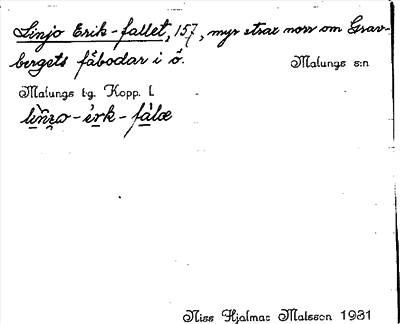 Linjo Erik-fallet, 157, myr strax norr om Grav-
bergets fäbodar i ö.
Malungs s:n
Malungs t:g. Kopp. l.
Niss Hjalmar Matsson 1931